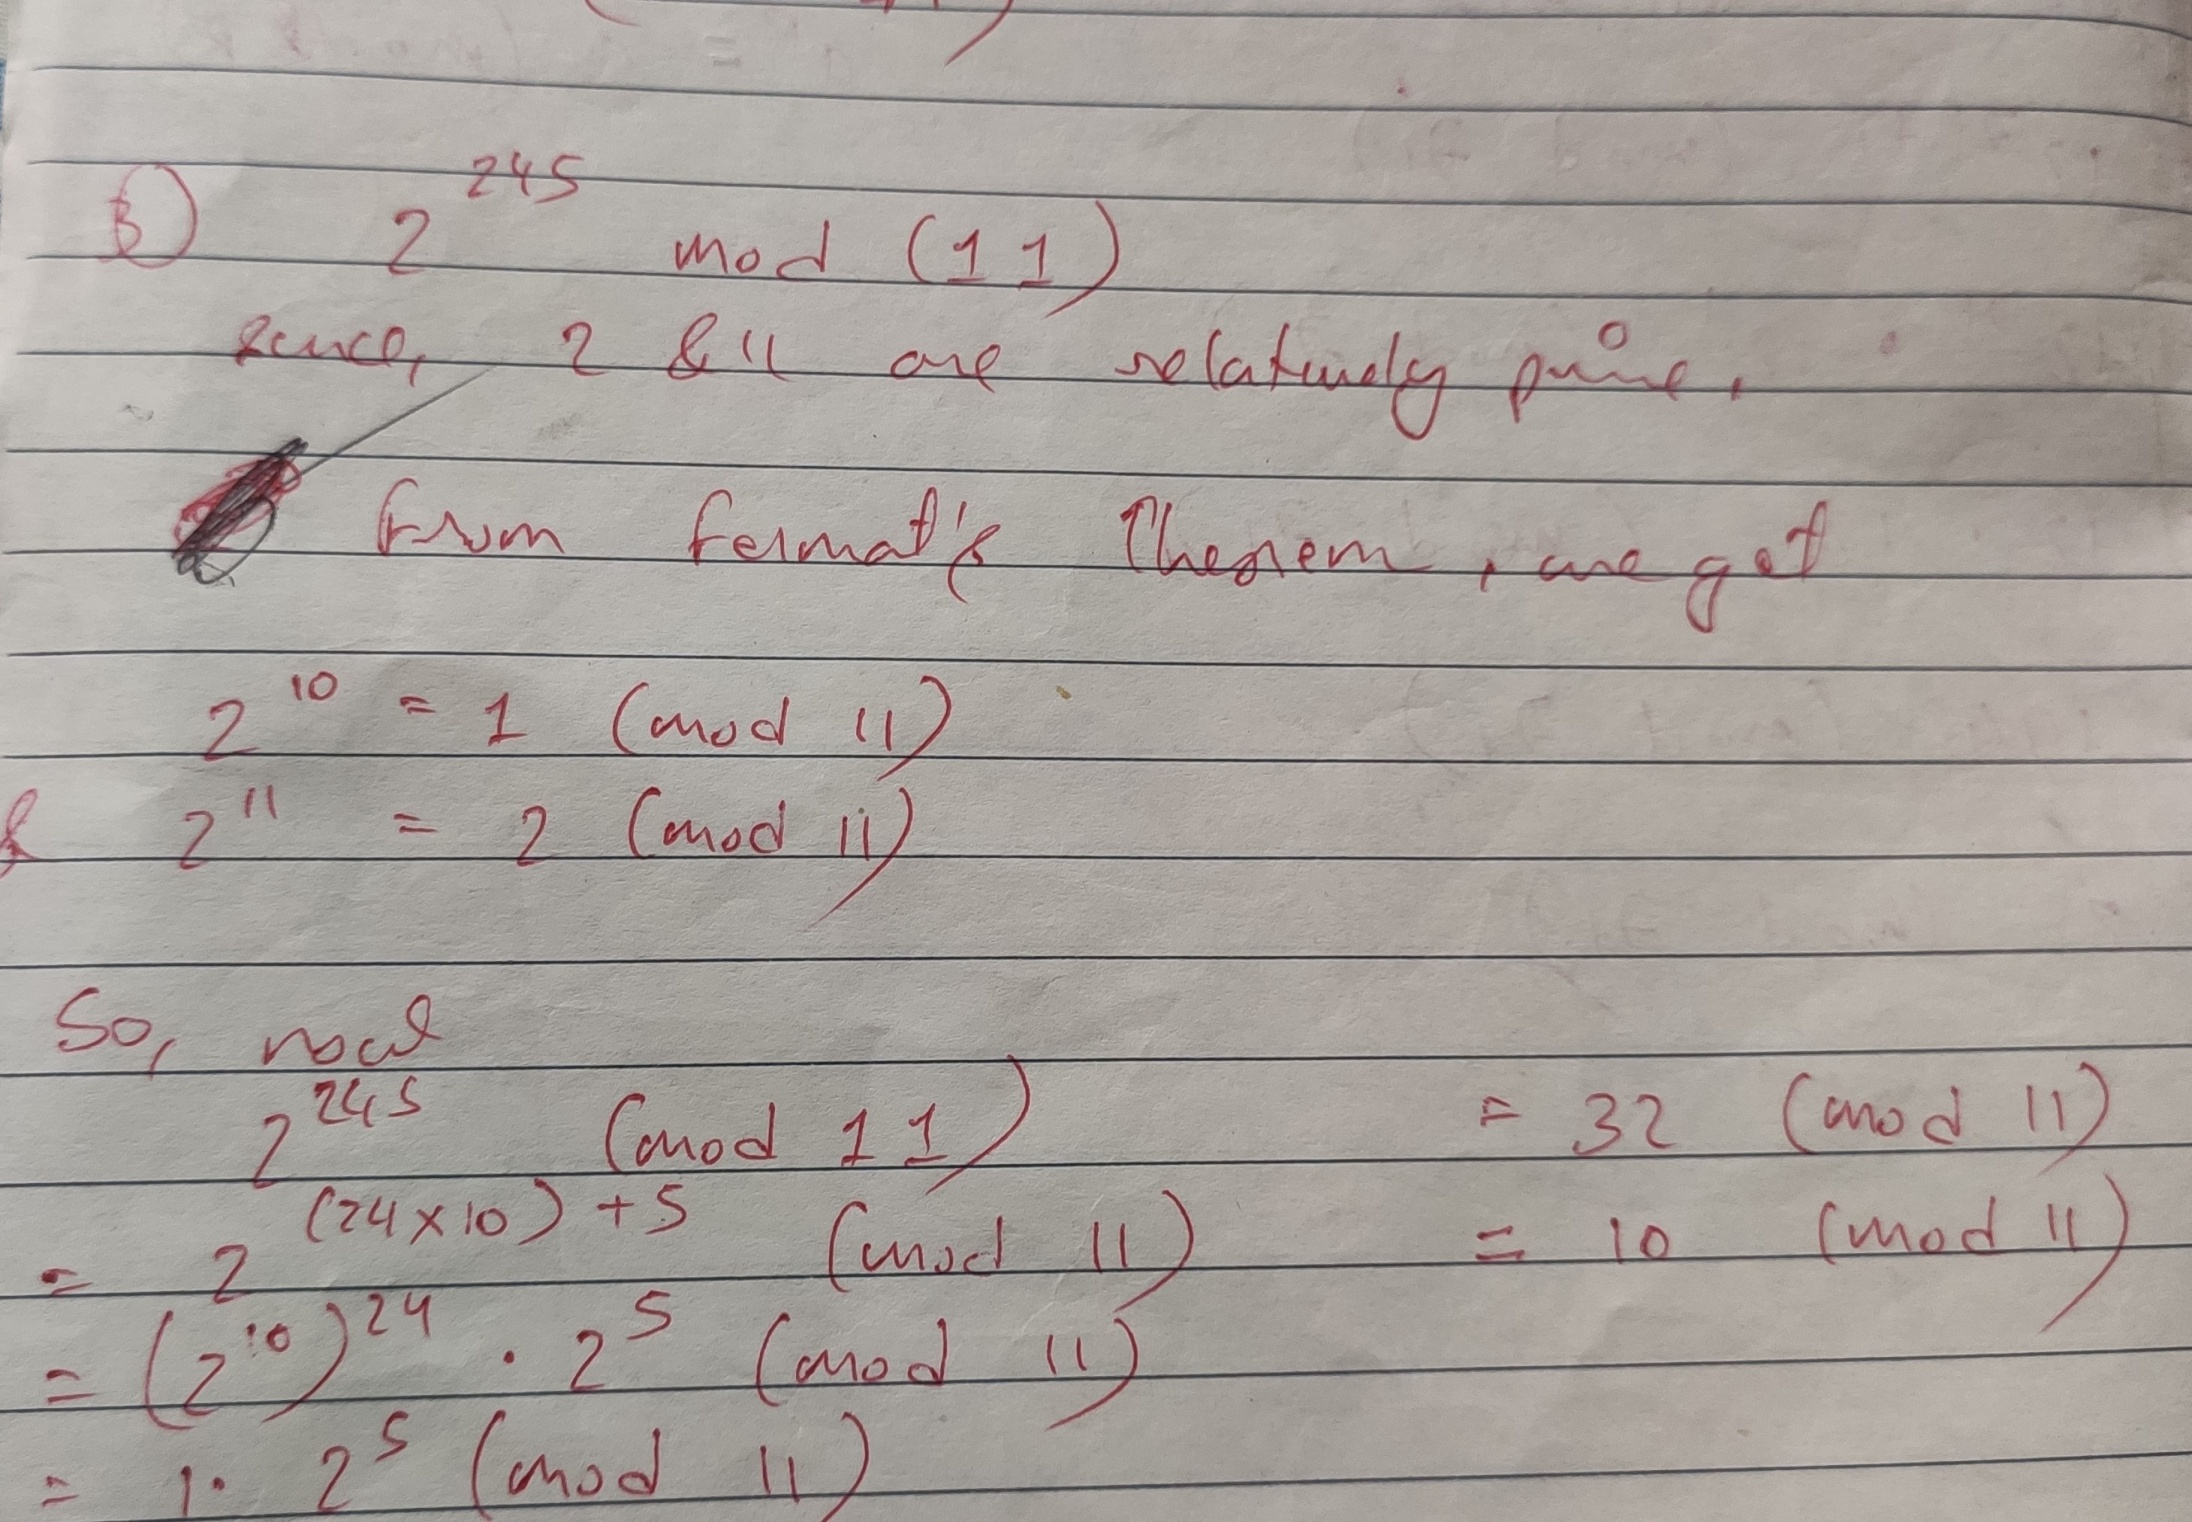 B) 2^245 mod (11)
since, 2 & 11 are relatively prime.
From Fermat's Theorem, we get
2^10 = 1 (mod 11)
& 2^11 = 2 (mod 11)
So, now
2^245 (mod 11)
= 2^(24×10)+5 (mod 11)
= (2^10)^24 · 2^5 (mod 11)
= 1. 2^5 (mod 11)
= 32 (mod 11)
= 10 (mod 11)